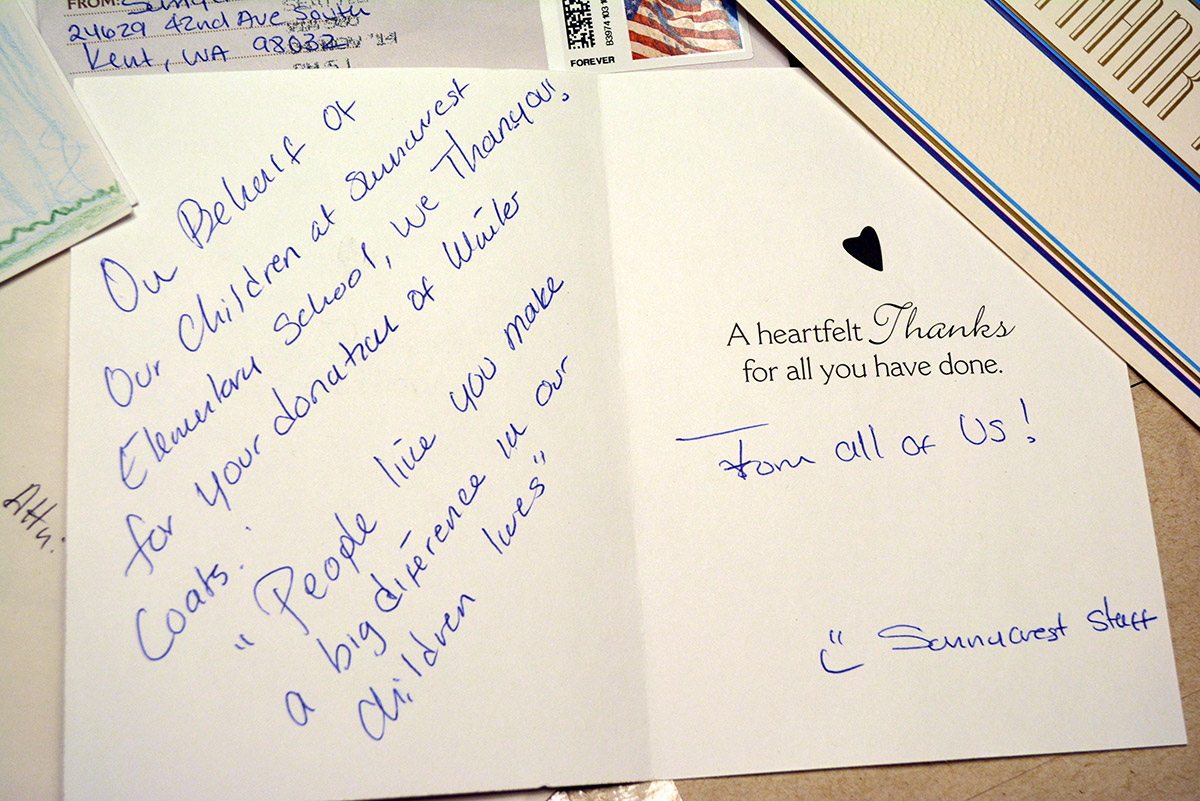 FROM:
24629 42nd Ave South
Kent, WA 98032
NOV '19
B3974 103
FOREVER
THANK
Attn:
On Behalf of
Our Children at Sunnycrest
Elementary School, we Thankyou,
for your donation of Winter
Coats.
"People like you make
a big difference in our
children lives"
A heartfelt Thanks
for all you have done.
From all of Us!
Sunnycrest Staff